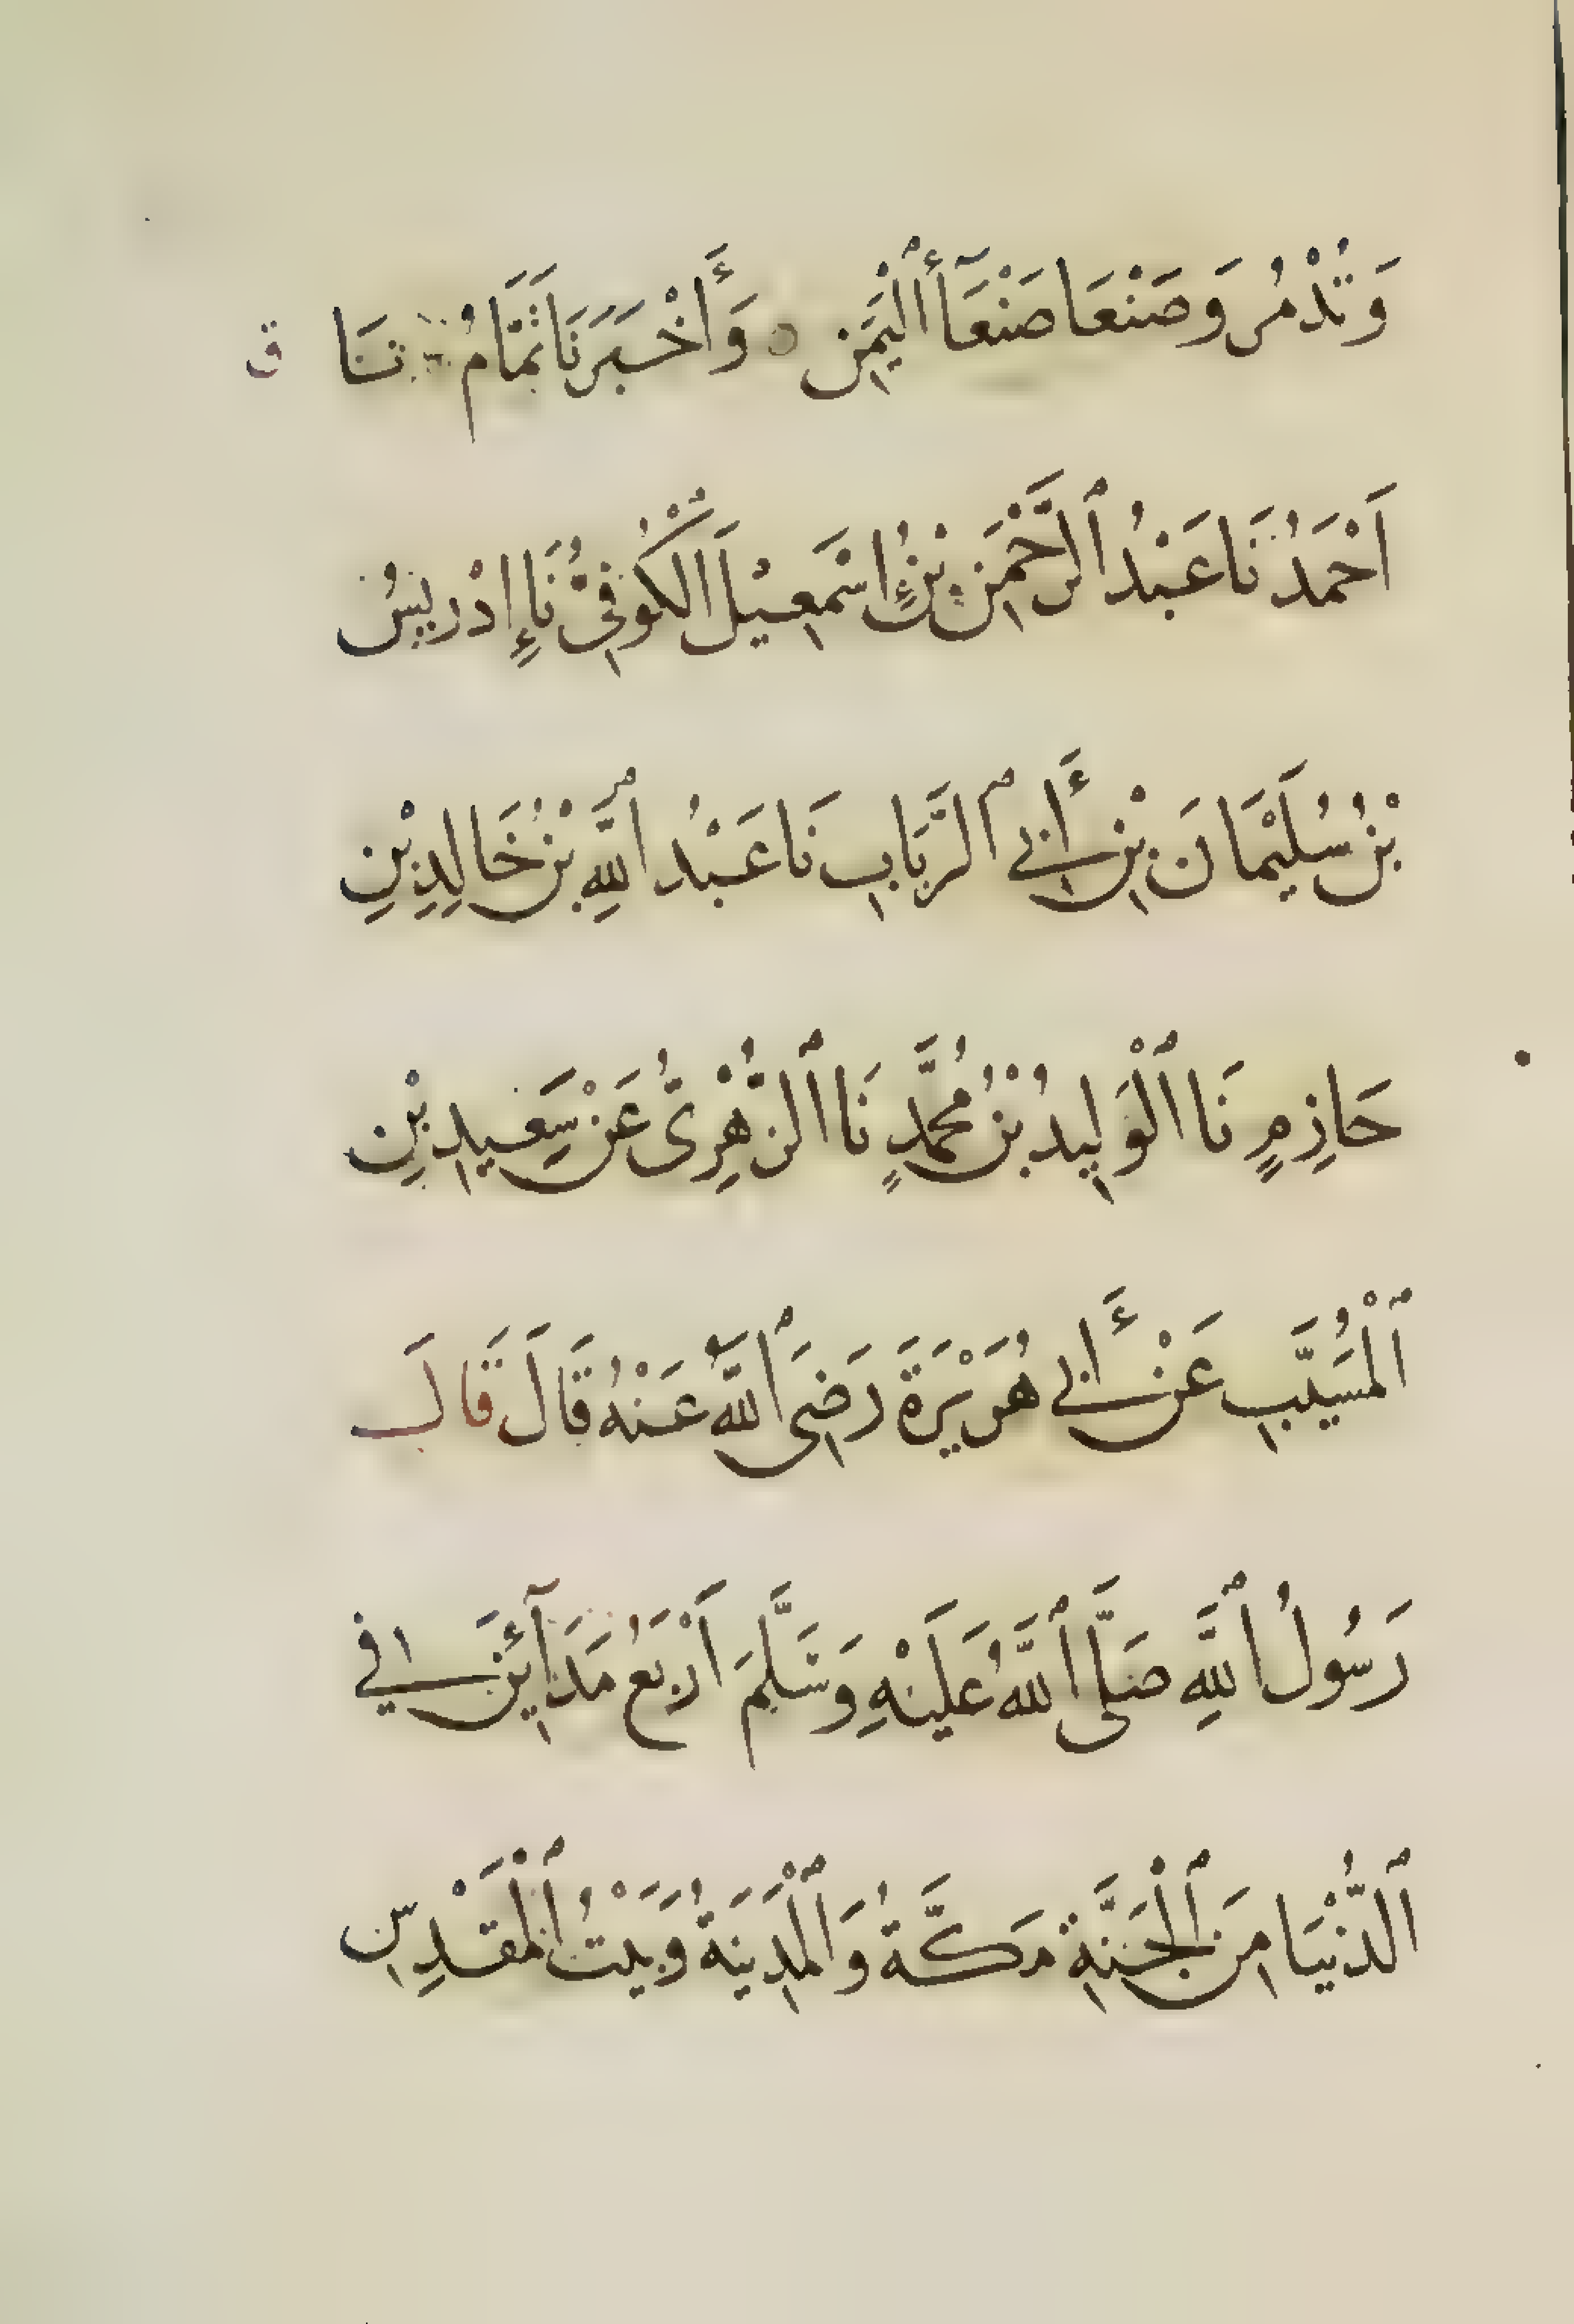 وَتُدْمُر وَصَنْعَا صَنْعَآءُ ٱلْيَمَنِ ۝ وَأَخْبَرَنَا تَمَّامُ ثَنَا ق
اَحْمَدُ نَا عَبْدُ ٱلرَّحْمَنِ بْنُ إِسْمَعِيْلَ الْكُوفِيُّ نَا إِدْرِيسُ
بْنُ سُلَيْمَانَ بْنِ أَبِي ٱلرَّبَابِ نَا عَبْدُ ٱللَّهِ بْنُ خَالِدِ بْنِ
حَازِمٍ نَا ٱلْوَلِيدُ بْنُ مُحَمَّدٍ نَا ٱلزُّهْرِىُّ عَنْ سَعِيدِ بْنِ
ٱلْمُسَيَّبِ عَنْ أَبِي هُرَيْرَةَ رَضِىَ ٱللَّهُ عَنْهُ قَالَ قَالَ
رَسُولُ ٱللَّهِ صَلَّى ٱللَّهُ عَلَيْهِ وَسَلَّمَ اَرْبَعُ مَدَآئِنَ فِي
ٱلدُّنْيَا مِنَ ٱلْجَنَّةِ مَكَّةُ وَٱلْمَدِينَةُ وَبَيْتُ ٱلْمَقْدِسِ